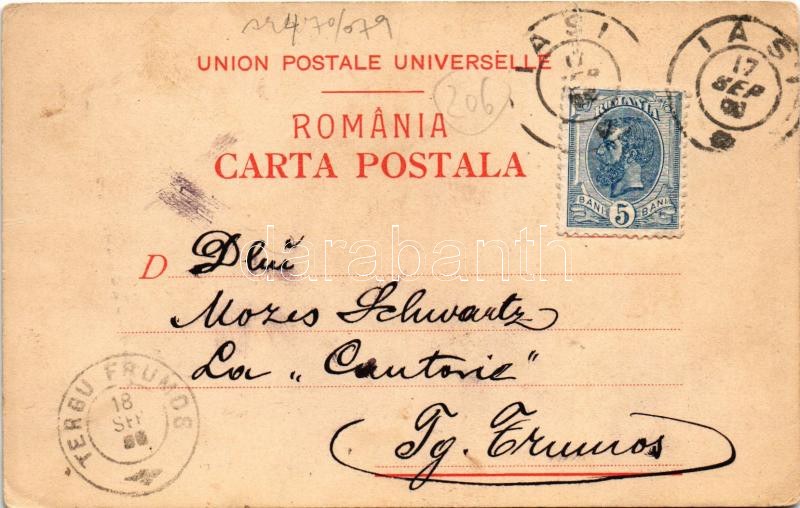 UNION POSTALE UNIVERSELLE
ROMÂNIA
CARTA POSTALA
206
IASI
17
SEP
IASI
17
SEP
ROMANIA
BANI 5 BANI
D Dlui
Mozes Schwartz
La „Cantorie"
Tg. Frumos
TERGU FRUMOS
18
SEP
darabanth